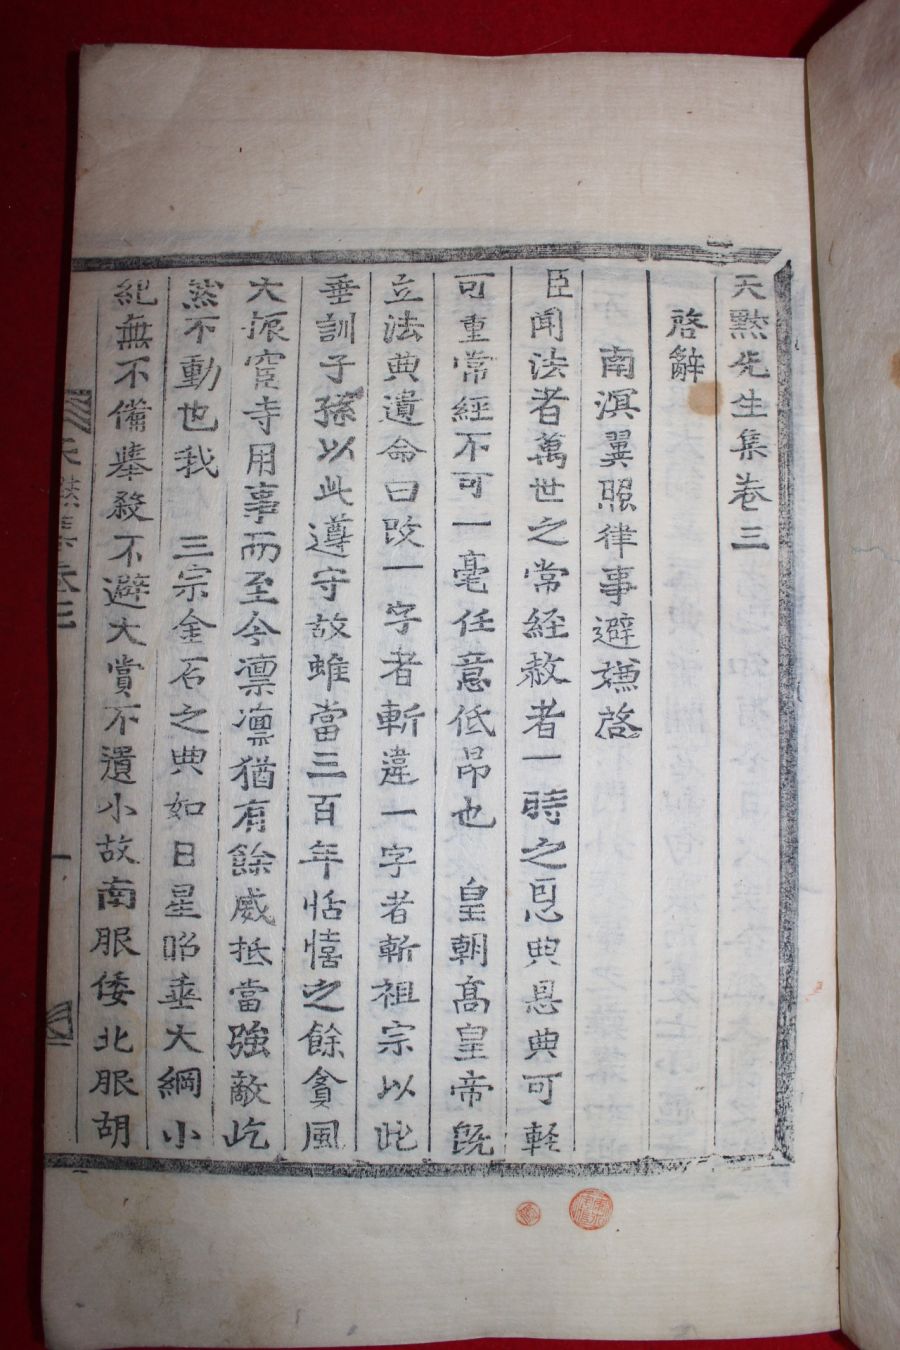 天默先生集卷三
啓辭
南溟翼照律事避嫌啓
臣聞法者萬世之常経赦者一時之恩典恩典可軽
可重常経不可一毫任意低昂也 皇朝高皇帝旣
立法典遺命曰改一字者斬違一字者斬祖宗以此
垂訓子孫以此遵守故雖當三百年恬憘之餘貪風
大振宦寺用事而至今凛凛猶有餘威抵當強敵屹
然不動也我 三宗金石之典如日星昭垂大綱小
紀無不備舉殺不避大賞不遺小故南服倭北服胡
天默集 卷三 一